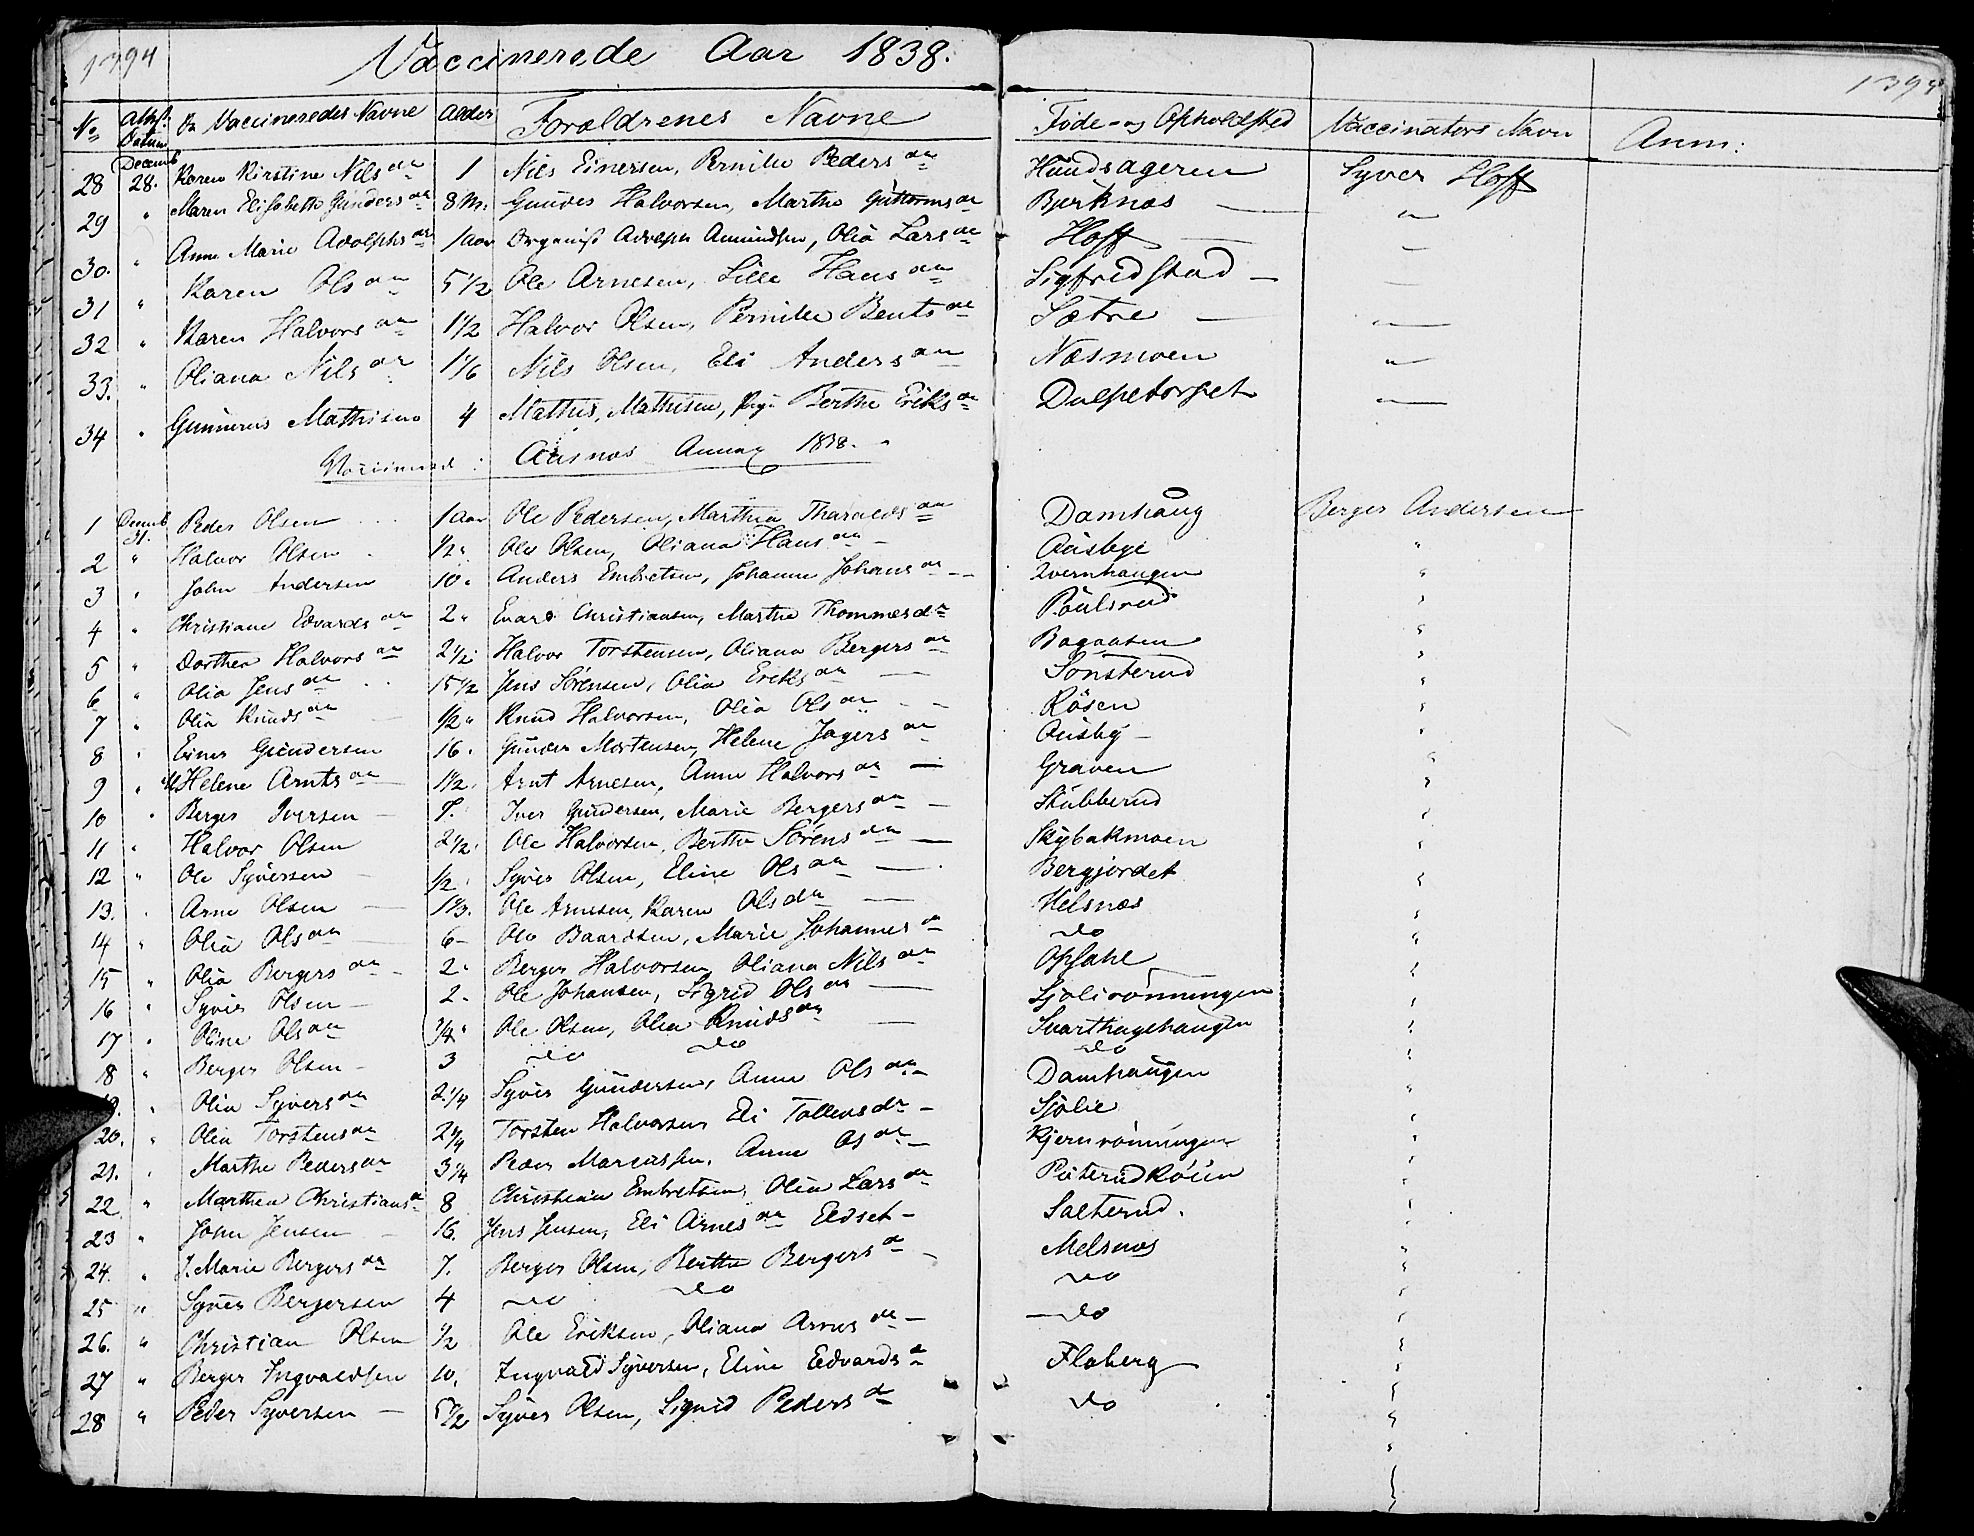 1394 Vaccinerede Aar 1838. 1394
No Attest Datum De Vaccineredes Navne Alder Forældrenes Navne Føde- og Opholdsted Vaccinators Navn Anm:
28 Decemb 28. Karen Kirstine Nilsdn 1 Nils Einersen, Pernille Pedersdn Hundsageren Syver Hoff
29 " Maren Elisabeth Gundersdn 8 M. Gunder Halvorsen, Marthe Guttormsdn Bjerknæs — "
30. " Anne Marie Adolphsdn 1 Aar Organist Adolph Amundsen, Olia Larsdn Hoff — "
31 " Karen Olsdn 5 1/2 Ole Arnesen, Lille Hansdn Sigfridstad — "
32 " Karen Halvorsdn 1 1/2 Halvor Olsen, Pernille Bentsdn Sætre — "
33. " Oliana Nilsdn 1 1/6 Nils Olsen, Eli Andersdn Næsmoen "
34 " Gunnerus Mathisen 4 Mathis Mathisen, Berthe Eriksdn "
Vaccinered: Aasnæs Annex 1838.
1 Decemb 31. Peder Olsen 1 Aar Ole Pedersen, Marthea Tharaldsdn Damhaug Berger Andersen
2 " Halvor Olsen 1/2 " Ole Olsen, Oliana Hansdn — Ausbye "
3 " John Andersen 10 " Anders Embretsen, Johanne Johansdn — Qvernhaugen "
4 " Christiane Edvardsdn 2 " Evard Christiansen, Marthe Thommesdn Paulsrud "
5 " Dorthea Halvorsdn 2 1/2 Halvor Torstensen, Oliana Bergersdn Bagaasen "
6 " Olia Jensdn 15 1/2 Jens Sörensen, Olia Eriksdn — Sönsterud "
7 " Olia Knudsdn 1/2 " Knud Halvorsen, Olia Olsdn — Råsen "
8 " Einer Gundersen 16. Gunder Mortensen, Helene Jägersdn Ausby — "
9 " Helene Arntsdn 1 1/2. Arnt Arnesen, Anne Halvorsdn — Graven "
10 " Berger Iversen — 7. Iver Gundersen, Marie Bergersdn — Stubberud "
11 " Halvor Olsen 2 1/2. Ole Halvorsen, Berthe Sörensdn — Skybakmoen "
12 " Ole Syversen — 1/2. Syver Olsen, Eline Olsdn — Bergjordet "
13. " Arne Olsen — 1 1/3. Ole Arnesen, Karen Olsdn — Helsnæs "
14 " Olia Olsdn — 6 – Ole Baardsen, Marie Johannesdn do "
15 " Olia Bergersdn — 2. Berger Halvorsen, Oliana Nilsdn Opsahl "
16 " Syver Olsen — 2. Ole Johansen, Sigrid Olsdn — Sjolirönningen "
17 " Oline Olsdn 3/4 " Ole Olsen, Olea Knudsdn — Svarthagehaugen "
18 " Berger Olsen — 3 do do do "
19. " Olia Syversdn 2 1/4 Syver Gundersen, Anne Olsdn — Damhaugen "
20. " Olia Torstensdn 2 1/4 Torsten Halvorsen, Eli Tollensdn — Sjölie "
21. " Marthe Pedersdn 3 1/4 Peder Marcussen, Anne Olsdn — Kjernrönningen "
22 " Marthea Christiansdn 8 Christian Embretsen, Olia Larsdn "
23 " John Jensen — 16. Jens Jensen, Eli Arnesdn Eidset — Salterud. "
24. " J. Marie Bergersdn 7. Berger Olsen, Berthe Bergersdn — Melsnæs "
25 " Syver Bergersen 4 do do do "
26. " Christian Olsen 1/2 Ole Eriksen, Oliana Arnesdn — do "
27 " Berger Ingvaldsen 10. Ingvald Syversen, Eline Edvardsdn Flaberg "
28 " Peder Syversen — 5 1/2 Syver Olsen, Sigrid Pedersdn do "